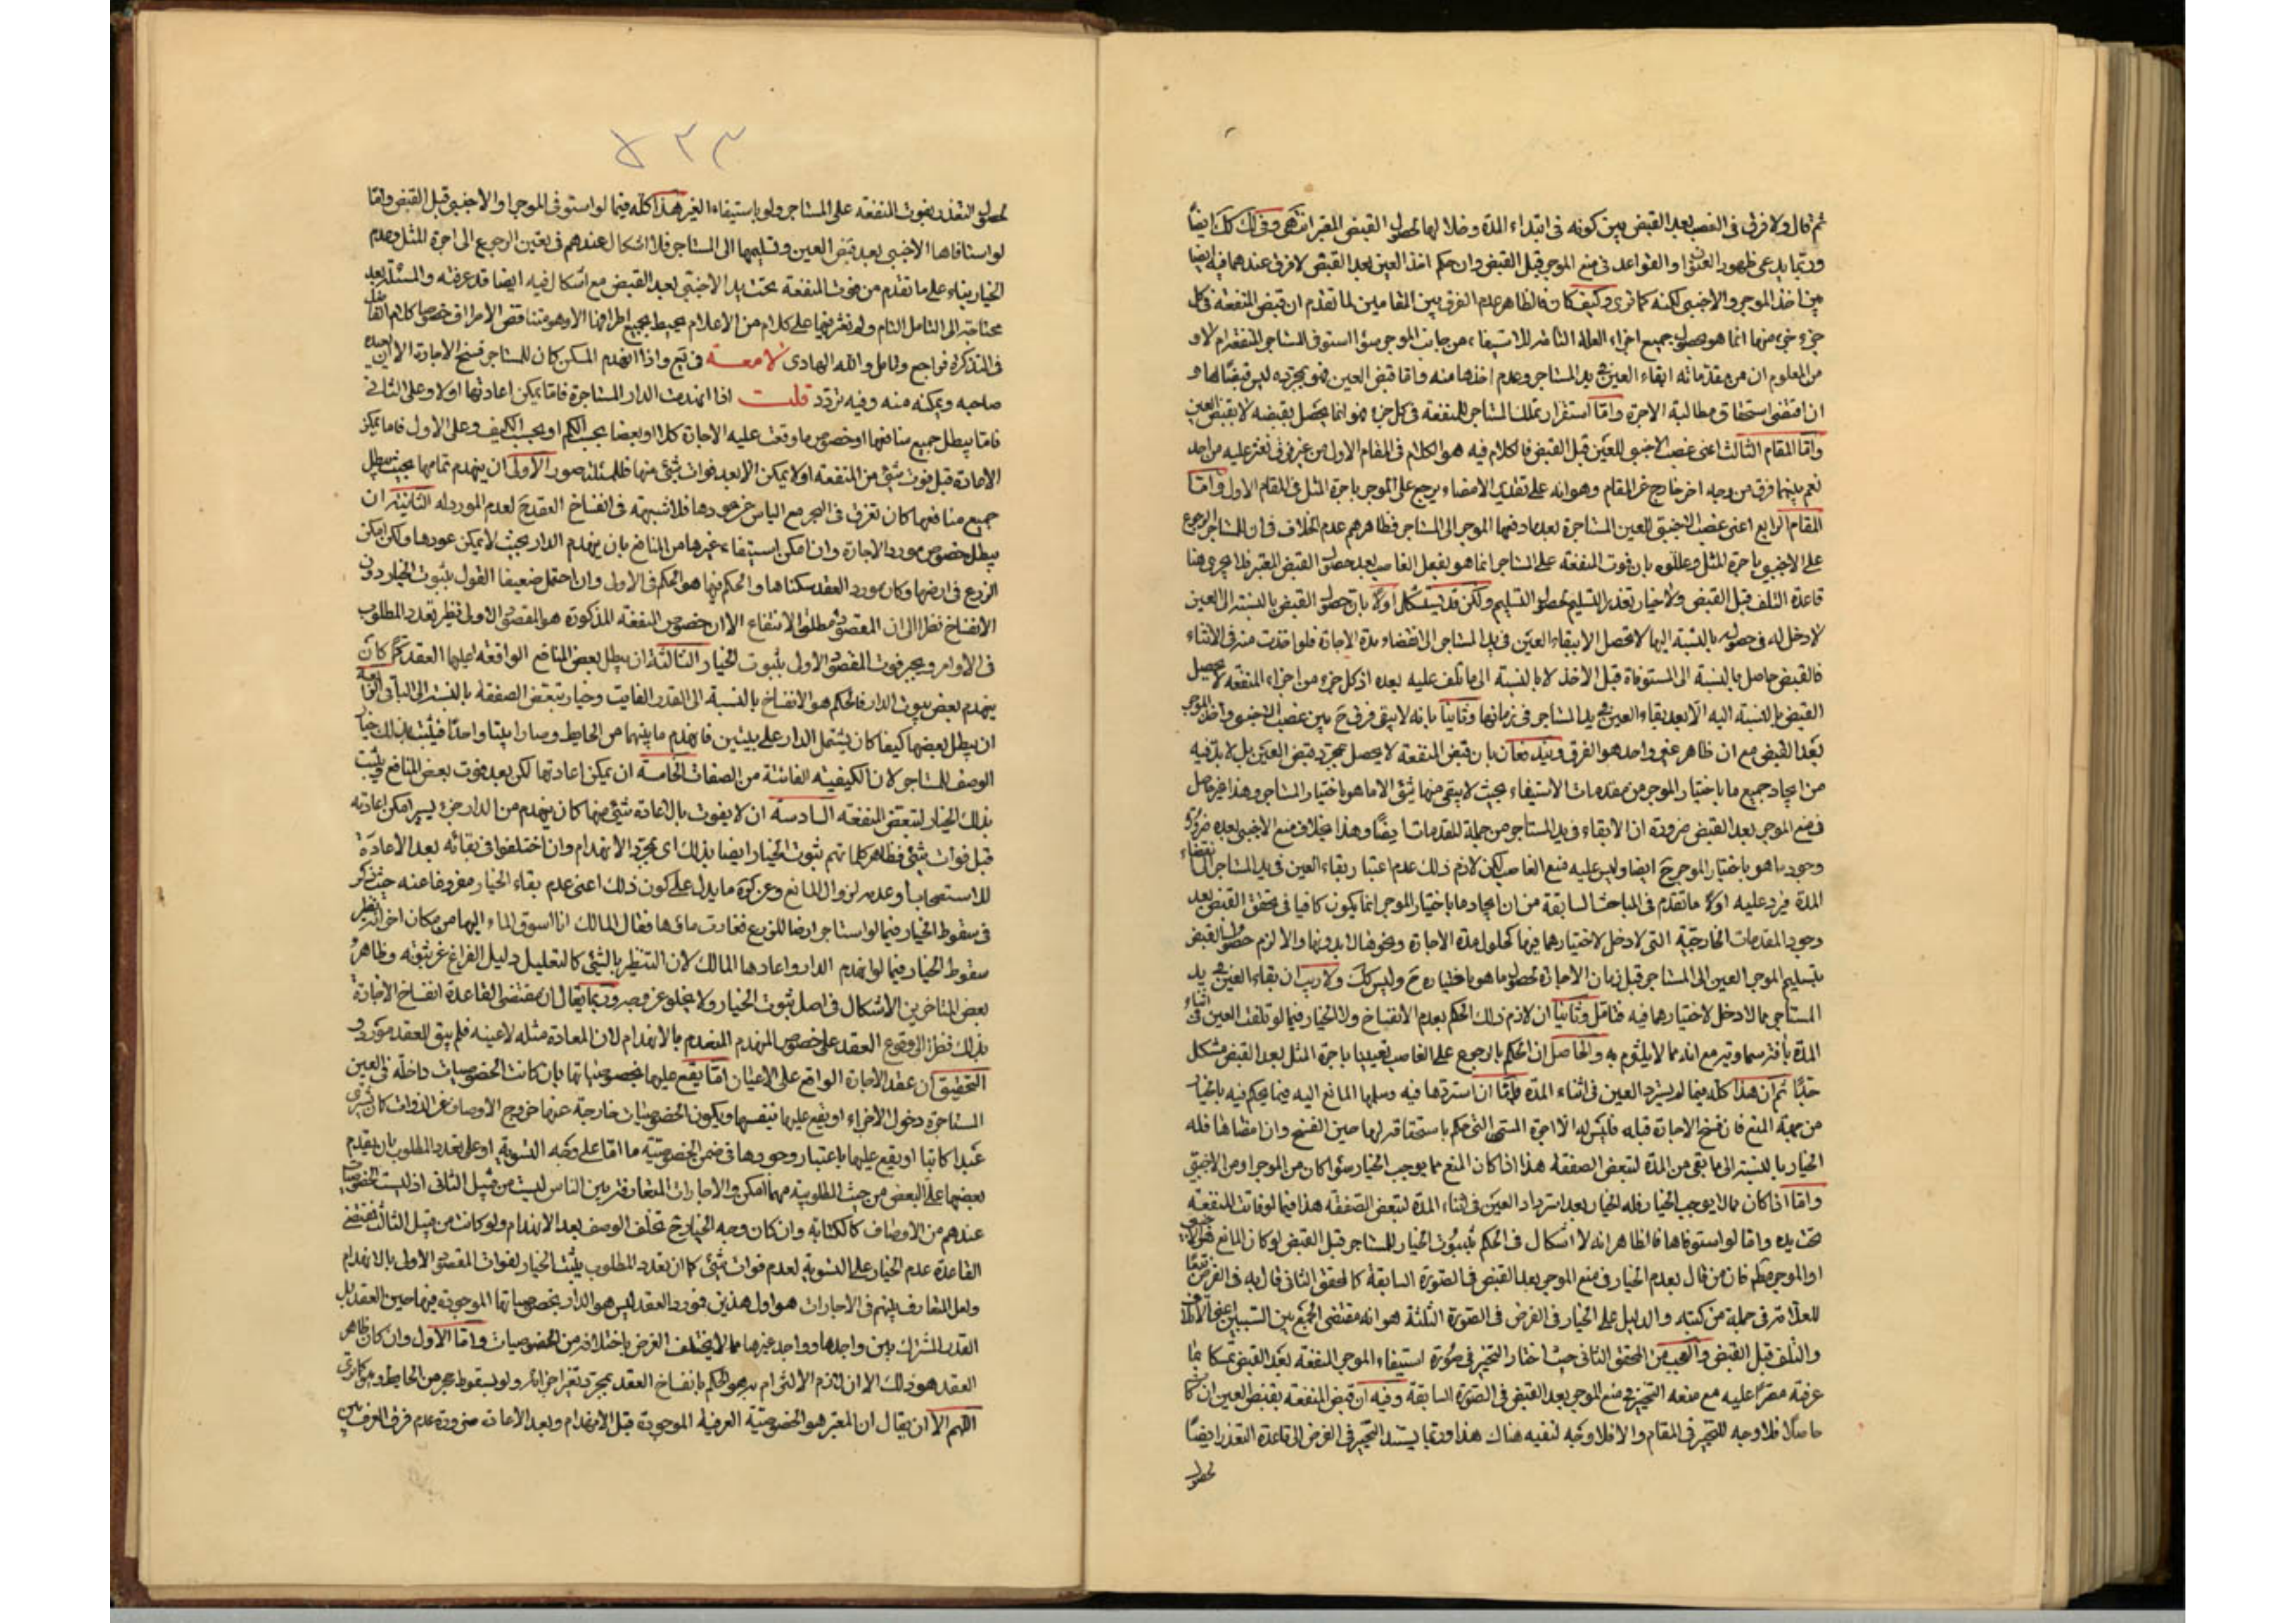 ثم قال ولا فرق فى الغصب بعد القبض بين كونه فى ابتداء المدة وخلالها لحصول القبض المعتبر انتهى وفى لك كك ايضاً
وربما يدعى ظهور او القواعد فى منع الموجر قبل القبض وان حكم اخذ العين بعد القبض لا فرق عندهما فيه ايضا
بين اخذ الموجر والاجنبى لكنه كما ترى وكيف كان فالظاهر عدم الفرق بين المقامين لما تقدم ان قبض المنفعة فى كل
جزء جزء منها انما هو بحصول جميع اجزاء العلة للاستيفاء من جانب الموجر سواء استوفى المستاجر المنفعة ام لا و
من المعلوم ان من مقدماته ابقاء العين فى يد المستاجر وعدم اخذها منه واما قبض العين فهو بمجرده ليس قبضا لها و
ان اقتضى استحقاق مطالبة الاجرة واما استقرار تملك المستاجر للمنفعة فى كل جزء فهو انما يحصل بقبضه لا بقبض العين
واما المقام الثالث اعنى غصب الاجنبى للعين قبل القبض فالكلام فيه هو الكلام فى المقام الاول من غير فرق نعثر عليه من احد
نعم بينهما فرق من وجه اخر خارج عن المقام وهو انه على تقدير الامضاء يرجع على الموجر باجرة المثل فى المقام الاول واما
المقام الرابع اعنى غصب الاجنبى للعين المستاجرة بعد ما دفعها الموجر الى المستاجر فظاهرهم عدم الخلاف فى ان للمستاجر الرجوع
على الاجنبى باجرة المثل وعللوه بان فوت المنفعة على المستاجر انما هو بفعل الغاصب بعد حصول القبض المعتبر فلا يجرى هنا
قاعدة التلف قبل القبض ولا خيار تعذر التسليم لحصول التسليم ولكن قد يستشكل اولا بان حصول القبض بالنسبة الى العين
لا دخل له فى حصوله بالنسبة اليها لا تحصل الا ببقاء العين فى يد المستاجر الى انقضاء مدة الاجارة فلو اخذت منه فى الاثناء
فالقبض حاصل بالنسبة الى المستوفاة قبل الاخذ لا بالنسبة الى ما تلف عليه بعده اذ كل جزء من اجزاء المنفعة لا يحصل
القبض بالنسبة اليه الا بعد بقاء العين فى يد المستاجر فى زمانها وثانيا بانه لا يبقى فرق ح بين غصب الاجنبى واخذ الموجر
بعد القبض مع ان ظاهر غير واحد هو الفرق ويندفعان بان قبض المنفعة لا يحصل بمجرد قبض العين بل لا بد فيه
من ايجاد جميع ما باختيار الموجر من مقدمات الاستيفاء بحيث لا يبقى منها شئ الا ما هو باختيار المستاجر وهذا غير حاصل
فى منع الموجر بعد القبض ضرورة ان الابقاء فى يد المستاجر من جملة المقدمات ايضا وهذا بخلاف منع الاجنبى بعده ضرورة
وجود ما هو باختيار الموجر ح ايضا وليس عليه منع الغاصب لكن لازم ذلك عدم اعتبار بقاء العين فى يد المستاجر الى انقضاء
المدة فيرد عليه اولا ما تقدم فى المباحث السابقة من ان ايجاد ما باختيار الموجر انما يكون كافيا فى تحقق القبض بعد
وجود المقدمات الخارجية التى لا دخل لاختيارهما فيها كحلول مدة الاجارة ونحو ذلك بدونها والا لزم حصول القبض
بتسليم الموجر العين الى المستاجر قبل زمان الاجارة لحصول ما هو باختياره ح وليس كك ولا ريب ان بقاء العين فى يد
المستاجر مما لا دخل لاختيارهما فيه فتامل وثانيا ان لازم ذلك الحكم بعدم الانفساخ ولا الخيار فيما لو تلفت العين فى اثناء
المدة بآفة سماوية مع انه مما لا يلتزم به والحاصل ان الحكم بالرجوع على الغاصب تعيينا باجرة المثل بعد القبض مشكل
جدا ثم ان هذا كله فيما لم يسترد العين فى اثناء المدة واما ان استردها فيه وسلمها المانع اليه فيما يحكم فيه بالخيار
من جهة المنع فان فسخ الاجارة قبله فليس له الا اجرة المسمى التى حكم باستحقاقه لها حين الفسخ وان امضاها فله
الخيار بالنسبة الى ما بقى من المدة لتبعض الصفقة هذا اذا كان المنع مما يوجب الخيار سواء كان من الموجر او من الاجنبى
واما اذا كان مما لا يوجب الخيار فله الخيار بعد استرداد العين فى اثناء المدة لتبعض الصفقة هذا فيما لو فاتت المنفعة
تحت يده واما لو استوفاها فالظاهر انه لا اشكال فى الحكم بثبوت الخيار للمستاجر قبل القبض لو كان المانع هو الاجنبى
او الموجر فان من قال بعدم الخيار فى منع الموجر بعد القبض فى الصورة السابقة كالمحقق الثانى قال به فى الفرض تبعا
للعلامة فى جملة من كتبه والدليل على الخيار فى الفرض فى الصورة الثلثة هو انه مقتضى الجمع بين السببين اعنى الاتلاف
والتلف قبل القبض والعجب من المحقق الثانى حيث اختار التخيير فى صورة استيفاء الموجر المنفعة بعد القبض تمسكا بما
عرفت مصرا عليه مع منعه التخيير فى منع الموجر بعد القبض فى الصورة السابقة وفيه ان قبض المنفعة بقبض العين ان كان
حاصلا فلا وجه للتخيير فى المقام والا فلا وجه لنفيه هناك هذا وربما يستند التخيير فى الفرض الى قاعدة التعذر ايضاً
لحصول
٧٣٣
لحصول التعذر بفوت المنفعة على المستاجر ولو باستيفاء الغير هذا كله فيما لو استوفى الموجر او الاجنبى قبل القبض واما
لو استوفاها الاجنبى بعد قبض العين وتسليمها الى المستاجر فلا اشكال عندهم فى تعين الرجوع الى اجرة المثل وعدم
الخيار بناء على ما تقدم من فوت المنفعة تحت يد الاجنبى بعد القبض مع اشكال فيه ايضا قد عرفته والمسئلة بعد
محتاجة الى التامل التام ولم نعثر فيها على كلام من الاعلام محيط بجميع اطرافها الا وهو متناقض الاطراف خصوصا كلام الفاضل
فى التذكرة فراجع وتامل والله الهادى لامعة فى يع واذا انهدم المسكن كان للمستاجر فسخ الاجارة الا ان يعيده
صاحبه ويمكنه منه وفيه تردد قلت اذا انهدمت الدار المستاجرة فاما يمكن اعادتها او لا وعلى الثانى
فاما يبطل جميع منافعها او خصوص ما وقعت عليه الاجارة كلا او بعضا بحسب الكم او بحسب الكيف وعلى الاول فاما يمكن
الاعادة قبل فوت شئ من المنفعة او لا يمكن الا بعد فوات شئ منها فللمسئلة صور الاولى ان ينهدم تمامها بحيث يبطل
جميع منافعها كان تغرق فى البحر مع الياس عن عودها فلا شبهة فى انفساخ العقد ح لعدم المورد له الثانية ان
يبطل خصوص مورد الاجارة وان امكن استيفاء غيرها من المنافع بان ينهدم الدار بحيث لا يمكن عودها ولكن امكن
الزرع فى ارضها وكان مورد العقد سكناها والحكم فيها هو الحكم فى الاولى وان احتمل ضعيفا القول بثبوت الخيار دون
الانفساخ نظرا الى ان المقصود مطلق الانتفاع الا ان خصوص المنفعة المذكورة هو المقصود الاولى نظير تعدد المطلوب
فى الاوامر وبمجرد فوت المقصود الاولى يثبت الخيار الثالثة ان يبطل بعض المنافع الواقعة عليها العقد كما كان
ينهدم بعض بيوت الدار فالحكم هو الانفساخ بالنسبة الى القدر الفايت وخيار تبعض الصفقة بالنسبة الى الباقى الرابعة
ان يبطل بعضها كيفا كان يشتمل الدار على بيتين فانهدم ما بينهما من الحايط وصارا بيتا واحدا فيثبت بذلك خيار
الوصف للمستاجر لان الكيفية الفائتة من الصفات الخامسة ان يمكن اعادتها لكن بعد فوت بعض المنافع فيثبت
بذلك الخيار لتبعض المنفعة السادسة ان لا يفوت بالاعادة شئ منها كان ينهدم من الدار جزء يسير امكن اعادته
قبل فوات شئ فظاهر كلماتهم ثبوت الخيار ايضا بذلك اى بمجرد الانهدام وان اختلفوا فى بقائه بعد الاعادة
للاستصحاب وعدمه لزوال المانع وعن كرة ما يدل على كون ذلك اعنى عدم بقاء الخيار مفروغا عنه حيث ذكر
فى سقوط الخيار فيما لو استاجر ارضا للزرع فغارت ماؤها فقال المالك انا اسوق الماء اليها من مكان اخر انه نظير
سقوط الخيار فيما لو انهدم الدار واعادها المالك لان التنظير بالشئ كالتعليل دليل الفراغ عن ثبوته وظاهر
بعض المتاخرين الاشكال فى اصل ثبوت الخيار ولا يخلو عن وجه وربما يقال ان مقتضى القاعدة انفساخ الاجارة
بذلك نظرا الى وقوع العقد على خصوص المنهدم المنعدم بالانهدام لان المعادة مثله لا عينه فلم يبق للعقد مورد و
التحقيق ان عقد الاجارة الواقع على الاعيان اما يقع عليها بخصوصياتها بان كانت الخصوصيات داخلة فى العين
المستاجرة دخول الاجزاء او يقع عليها بنفسها ويكون الخصوصيات خارجة عنها خروج الاوصاف عن الذوات كان يشترى
عبدا كاتبا او يقع عليها باعتبار وجودها فى ضمن الخصوصية ما اما على وجه التسوية او على تعدد المطلوب بان يقدم
بعضها على البعض من حيث المطلوبية مهما امكن والاجارات المتعارفة بين الناس ليست من قبيل الثانى اذ ليست الخصوصيات
عندهم من الاوصاف كالكتابة وان كان وجه الخيار ح تخلف الوصف بعد الانهدام ولو كانت من قبيل الثالث فمقتضى
القاعدة عدم الخيار على التسوية لعدم فوات شئ كما ان تعدد المطلوب يثبت الخيار لفوات المقصود الاولى بالانهدام
ولعل المتعارف بينهم فى الاجارات هو اول هذين فمورد العقد ليس هو الدار بخصوصياتها الموجودة فيها حين العقد بل
القدر المشترك بين واجدها وواجد غيرها مما لا يختلف الغرض باختلافه من الخصوصيات واما الاول وان كان ظاهر
العقد هو ذلك الا ان لازم الالتزام به هو الحكم بانفساخ العقد بمجرد تغير اجزائه ولو بسقوط حجر من الحايط وهو كما ترى
اللهم الا ان يقال ان المعتبر هو الخصوصية العرفية الموجودة قبل الانهدام وبعد الاعادة ضرورة عدم فرق العرف بين